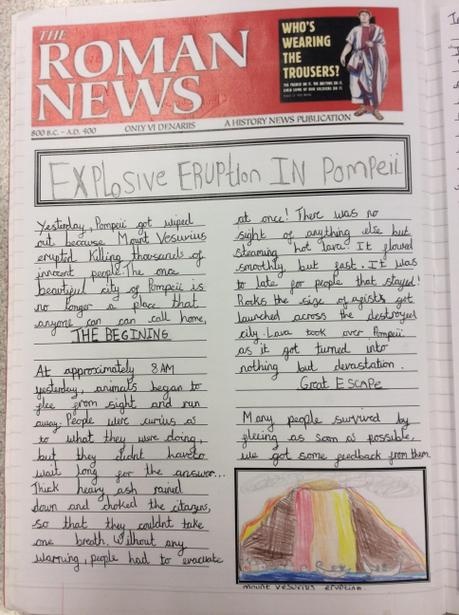 THE
ROMAN
NEWS
WHO'S
WEARING
THE
TROUSERS?
800 B.C. - A.D. 400
ONLY VI DENARIIS
A HISTORY NEWS PUBLICATION
EXPlosive ERUPtIon IN PomPeii
Yesterday, Pompeii got wiped
out because Mount Vesuvius
erupted killing thousands of
innocent people. The once
beautiful city of Pompeii is
no longer a place that
anyone can can call home.
THE BEGINING
At approximately 8 AM
yesterday, animals began to
flee from sight and run
away. People were curius as
to what they were doing,
but they didnt haveto
wait long for the answer...
Thick heavy ash rained
down and choked the citazens,
so that they couldnt take
one breath. Without any
warning, people had to evacuate
at once! There was no
sight of anything else but
steaming hot lava. It flowed
smoothly but fast. It was
to late for people that stayed!
Rocks the size of got
launched across the destroyed
city. Lava took over Pompeii
as it got turned into
nothing but devastation.
Great ESCAPE
Many people survived by
fleeing as soon as possible,
we got some feedback from them.
mount vesuvius erupting.